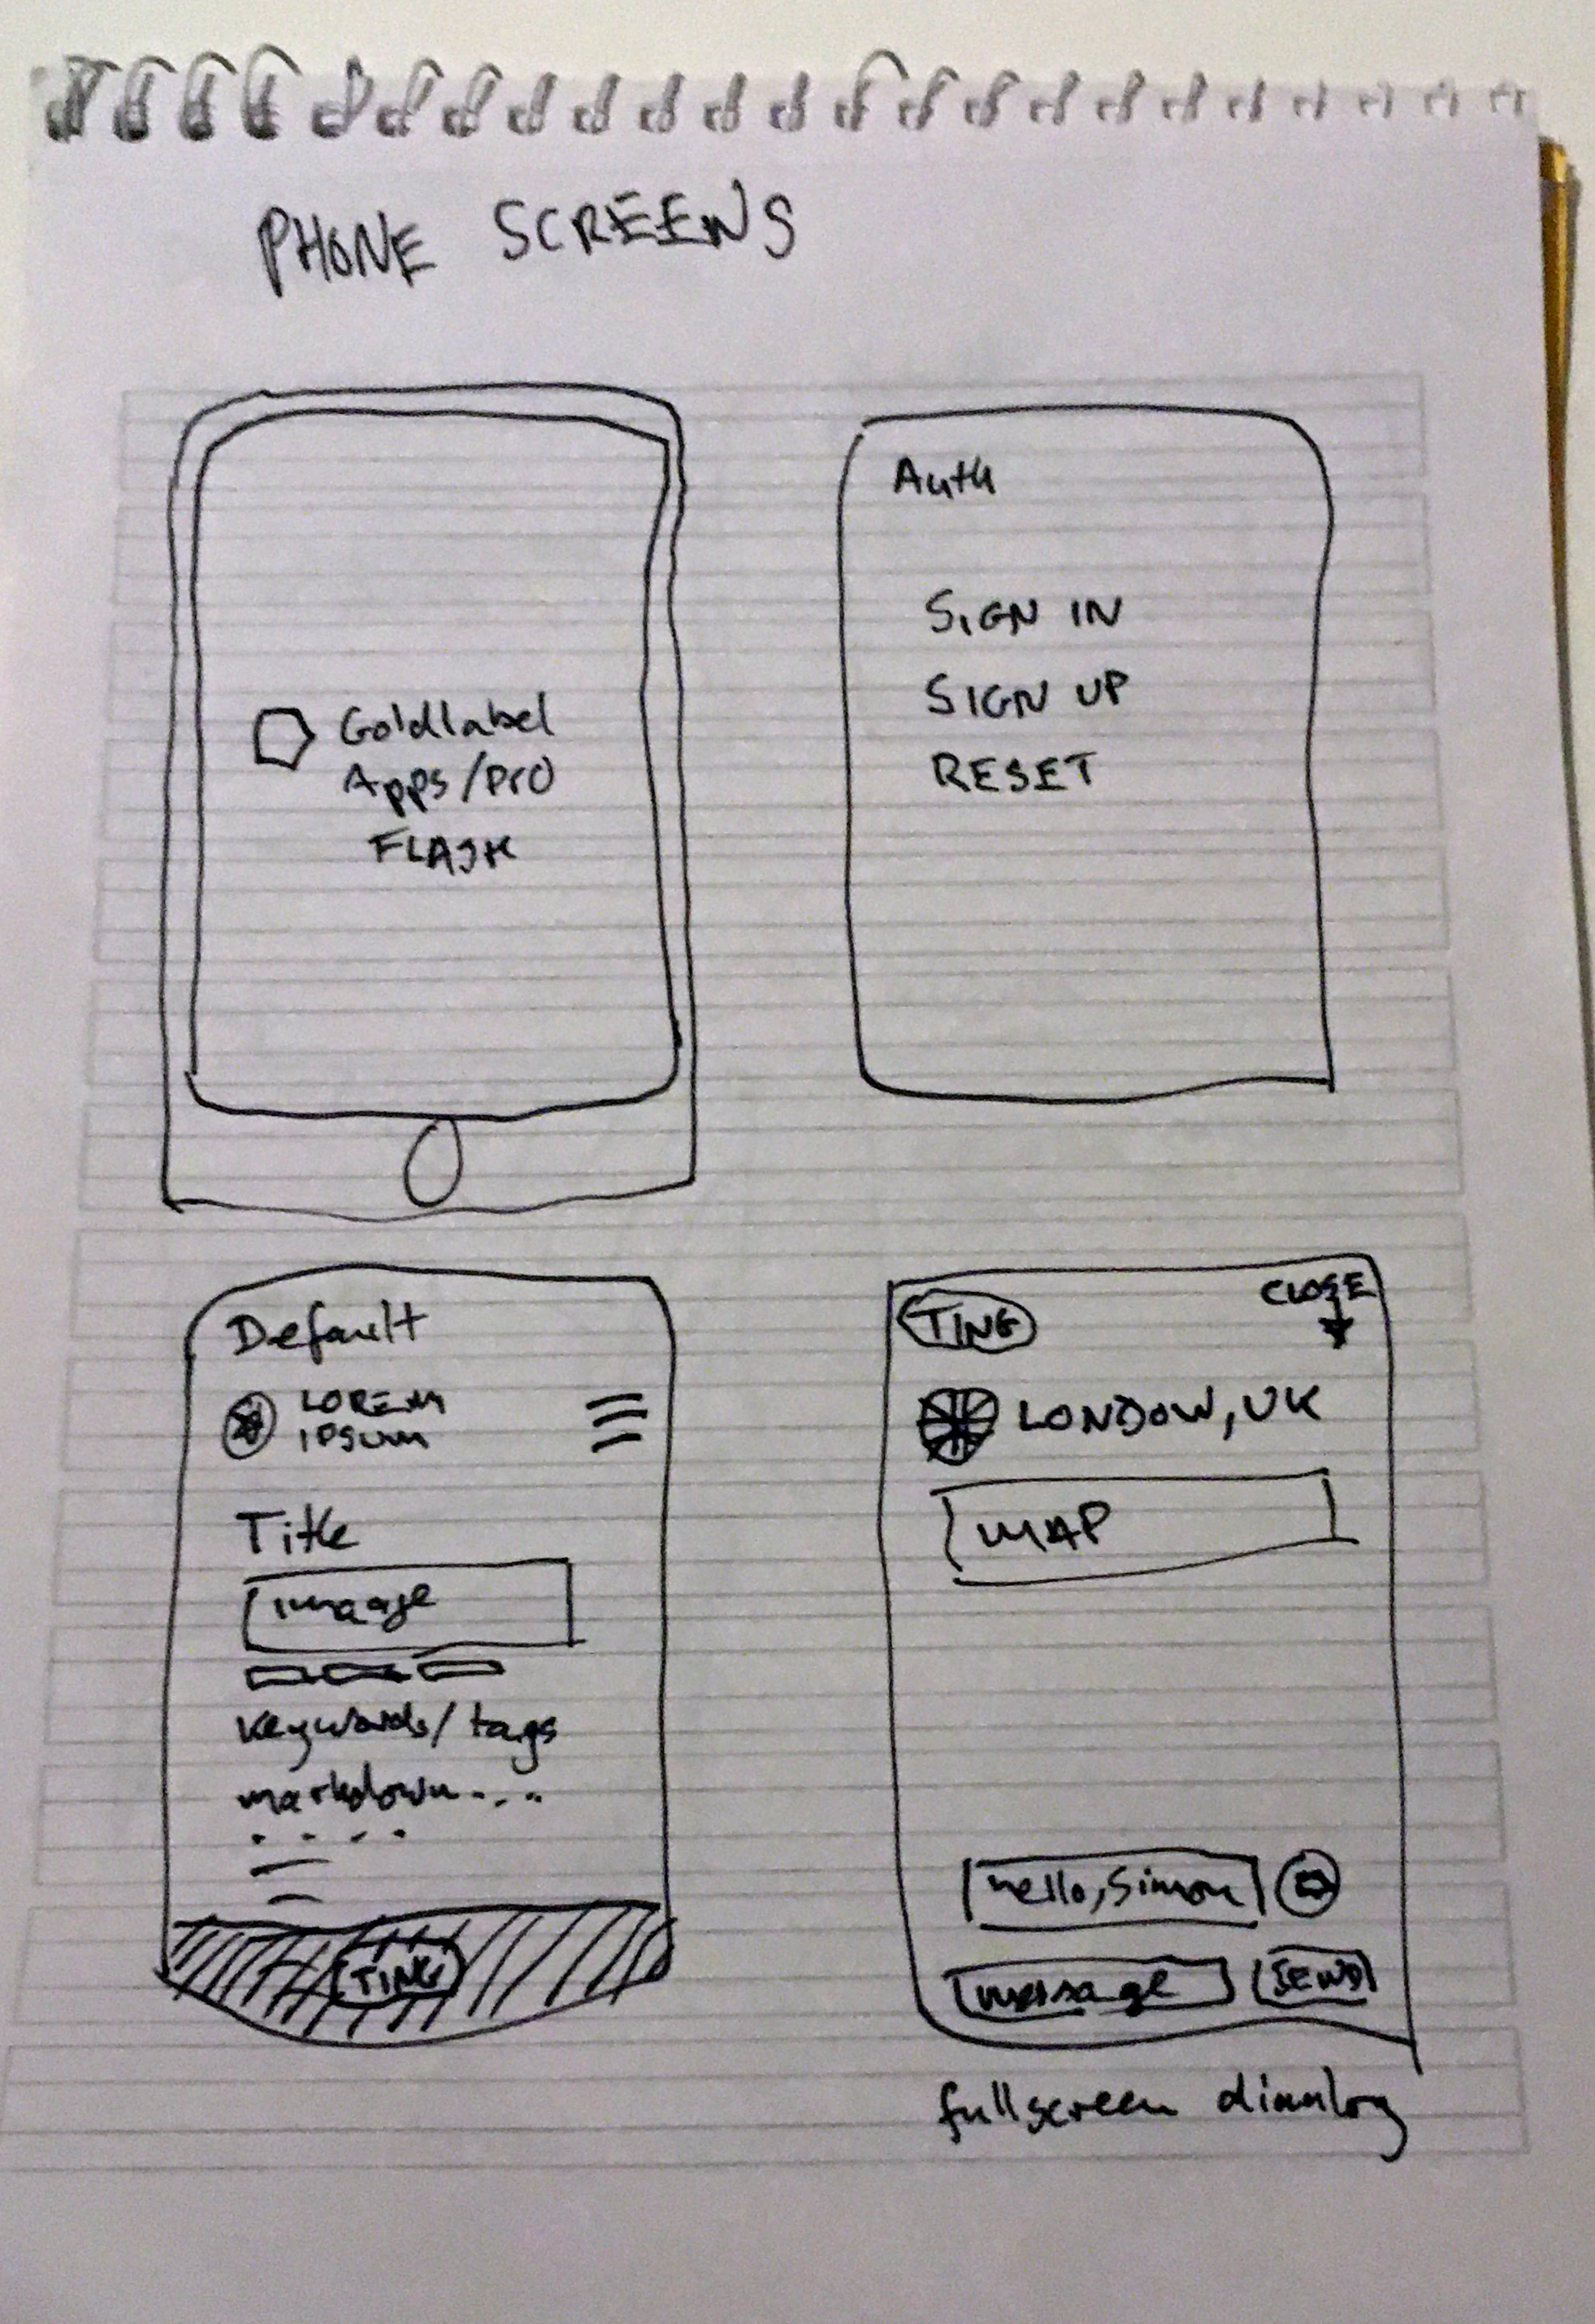 PHONE SCREENS
Goldlabel
Apps/Pro
FLASK
Auth
SIGN IN
SIGN UP
RESET
Default
LOREM
IPSUM
Title
image
keywords/tags
markdown...
TING
TING
CLOSE
LONDON, UK
MAP
hello, Simon
message
SEND
fullscreen dialog